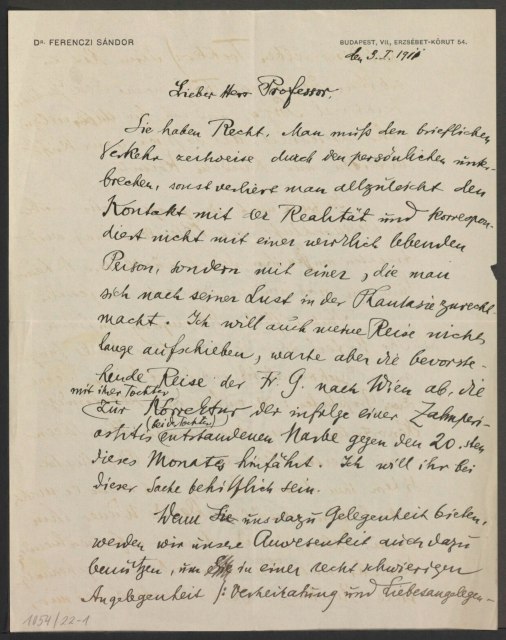 Dr. FERENCZI SÁNDOR
BUDAPEST, VII, ERZSÉBET-KÖRUT 54.
den 3. I. 1911
Lieber Herr Professor,
Sie haben Recht. Man muß den brieflichen
Verkehr zeitweise durch den persönlichen unter-
brechen, sonst verliert man allzuleicht den
Kontakt mit der Realität und korrespon-
diert nicht mit einer wirklich lebenden
Person, sondern mit einer, die man
sich nach seiner Lust in der Phantasie zurecht
macht. Ich will auch meine Reise nicht
lange aufschieben, warte aber die bevorste-
hende Reise der Fr. G. nach Wien ab, die
mit ihrer Tochter
zur Korrektur der infolge einer Zahnperi-
(bei der Tochter)
ostitis entstandenen Narbe gegen den 20. sten
dieses Monates hinfährt. Ich will ihr bei
dieser Sache behilflich sein.
Wenn Sie uns dazu Gelegenheit bieten,
werden wir unsere Anwesenheit auch dazu
benützen, um Sie in einer recht schwierigen
Angelegenheit /: Verheiratung und Liebesangelegen-
1054/22-1